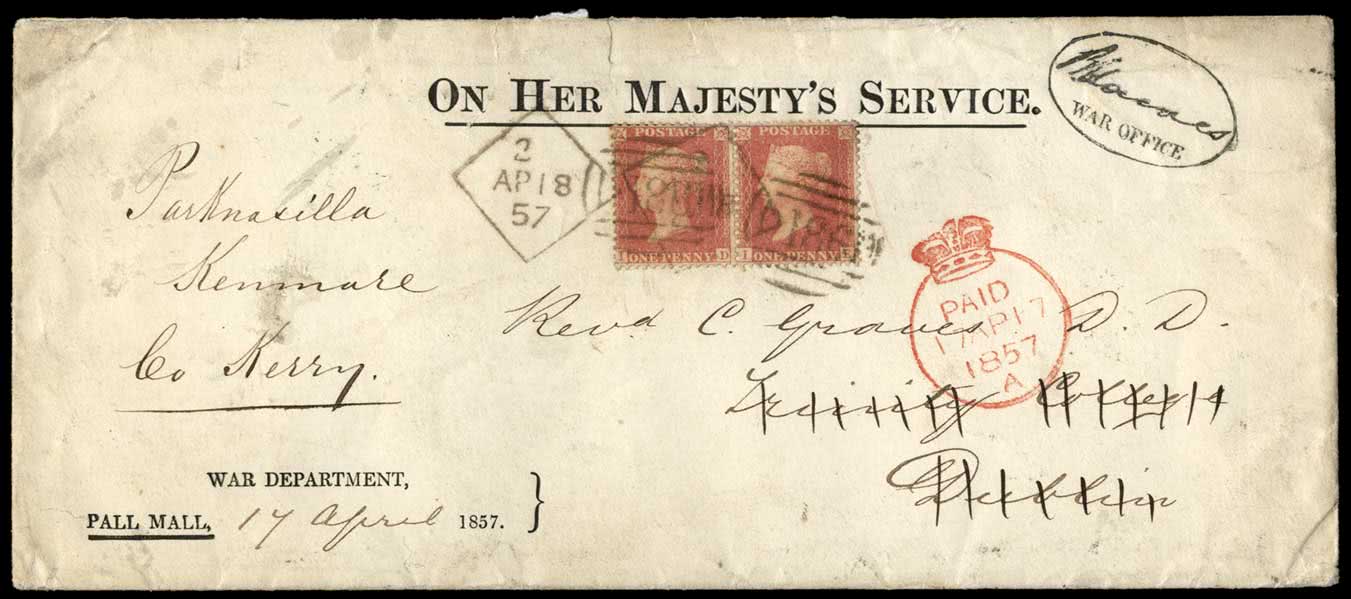 ON HER MAJESTY'S SERVICE.
WAR OFFICE
2
AP 18
57
POSTAGE POSTAGE
186
I ONE PENNY D I ONE PENNY
Parknasilla
Kenmare
Co Kerry.
PAID
17 AP 17
1857
A
Revd C. Graves D. D.
Trinity College
Dublin
WAR DEPARTMENT,
PALL MALL, 17 April 1857. }